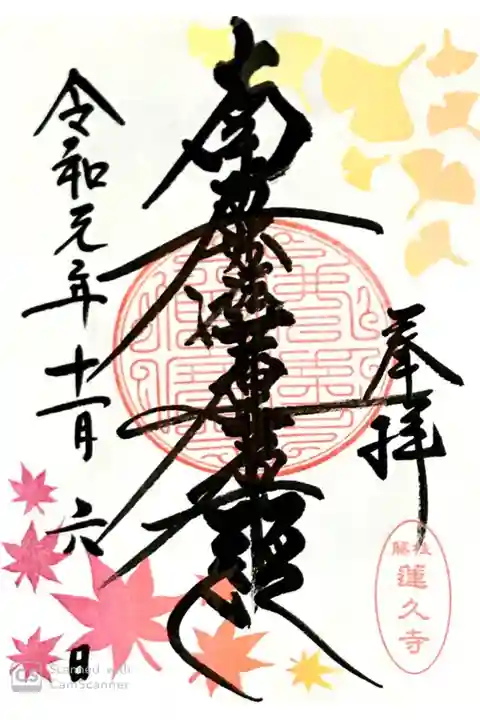 奉拝
南無妙法蓮華経
令和元年十一月六日
藤枝
蓮久寺
CS Scanned with
CamScanner